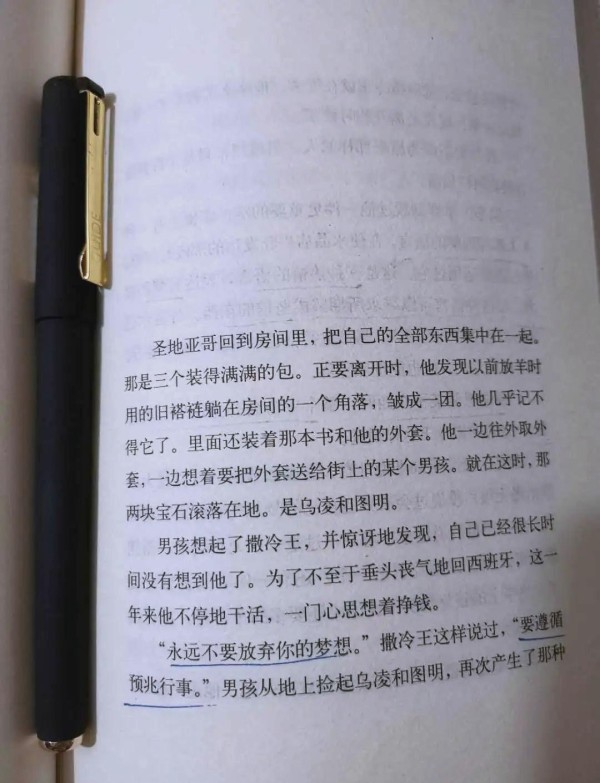 圣地亚哥回到房间里，把自己的全部东西集中在一起。
那是三个装得满满的包。正要离开时，他发现以前放羊时
用的旧褡裢躺在房间的一个角落，皱成一团。他几乎记不
得它了。里面还装着那本书和他的外套。他一边往外取外
套，一边想着要把外套送给街上的某个男孩。就在这时，那
两块宝石滚落在地。是乌凌和图明。
男孩想起了撒冷王，并惊讶地发现，自己已经很长时
间没有想到他了。为了不至于垂头丧气地回西班牙，这一
年来他不停地干活，一门心思想着挣钱。
“永远不要放弃你的梦想。”撒冷王这样说过，“要遵循
预兆行事。”男孩从地上捡起乌凌和图明，再次产生了那种